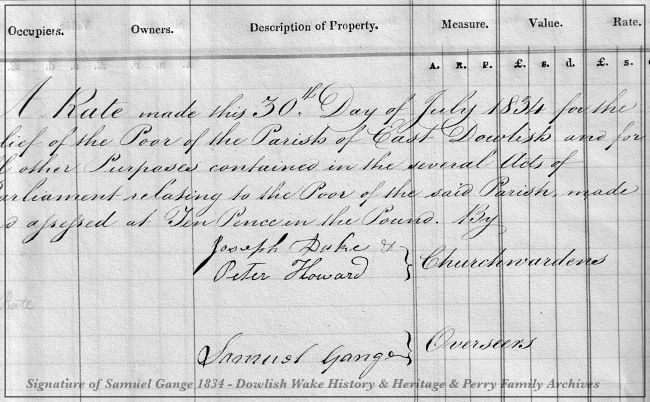 Occupiers. Owners. Description of Property. Measure. Value. Rate.
A. R. P. £. s. d. £. s.
A Rate made this 30th Day of July 1834 for the
lief of the Poor of the Parish of East Dowlish and for
ll other Purposes contained in the several Acts of
arliament relating to the Poor of the said Parish, made
d assessed at Ten Pence in the Pound. By
Joseph Dake &
Peter Howard } Churchwardens
Samuel Gange } Overseers
Signature of Samuel Gange 1834 - Dowlish Wake History & Heritage & Perry Family Archives